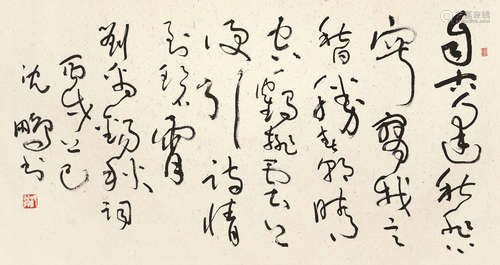 自古逢秋悲
寂寥我言
秋日勝春朝晴
空一鶴排雲上
便引詩情
到碧霄
劉禹錫秋詞
丙戌上巳
沈鵬書